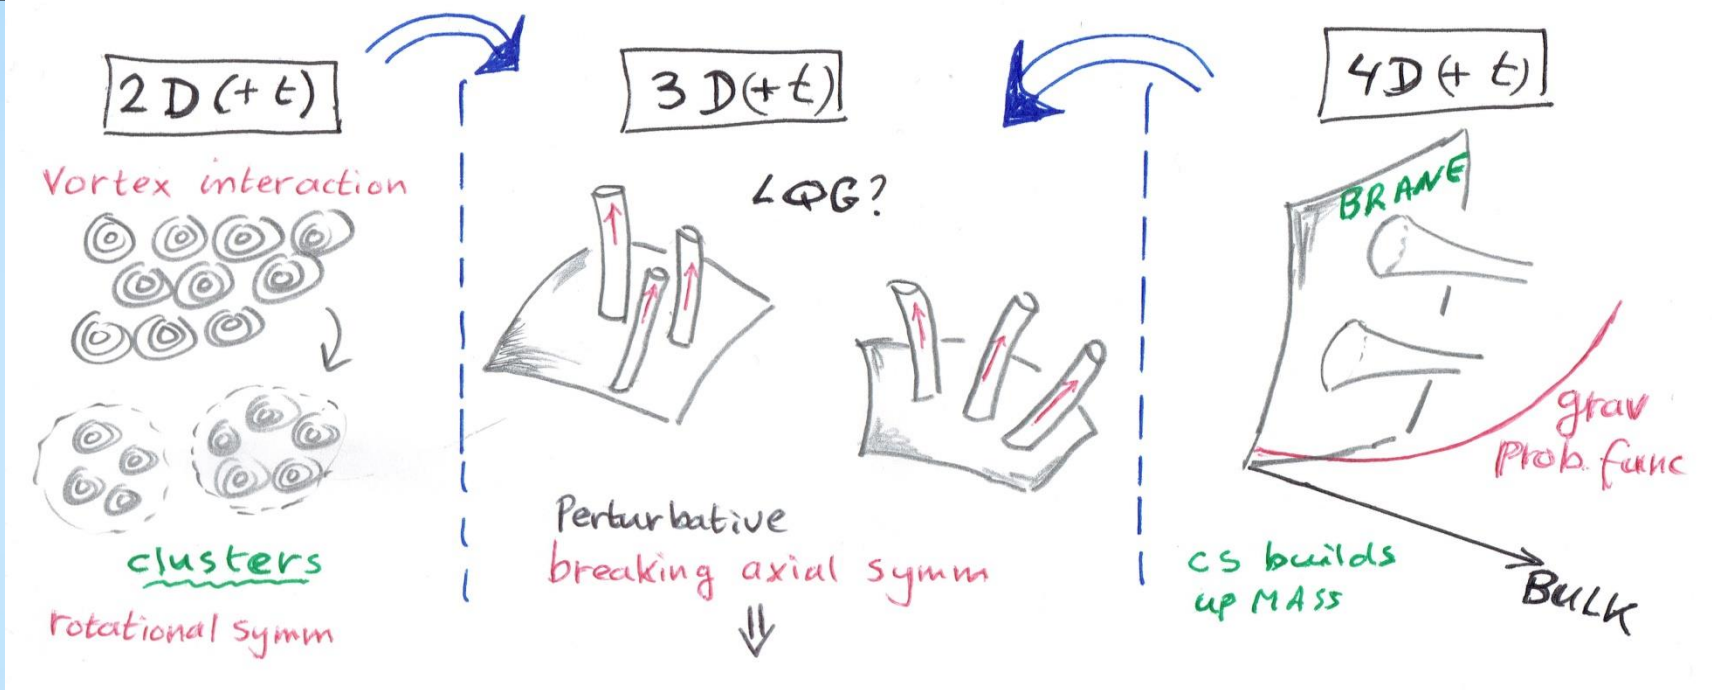 2D(+t)
Vortex interaction
clusters
rotational symm
3D(+t)
LQG?
Perturbative
breaking axial symm
4D(+t)
BRANE
grav
Prob. func
cs builds
up MASS
BULK